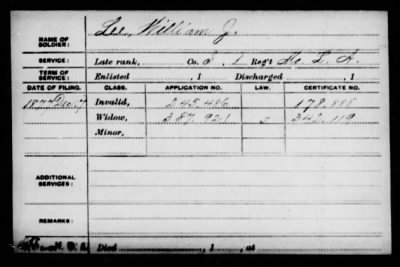 NAME OF SOLDIER: Lee, William J.
SERVICE: Late rank, Co. Reg't L. A.
TERM OF SERVICE: Enlisted , 1 Discharged , 1
DATE OF FILING. CLASS. APPLICATION NO. LAW. CERTIFICATE NO.
1877 Invalid, 245.486 178.888
Widow, 387.921 342.119
Minor,
ADDITIONAL SERVICES:
REMARKS:
Died , 1 , at